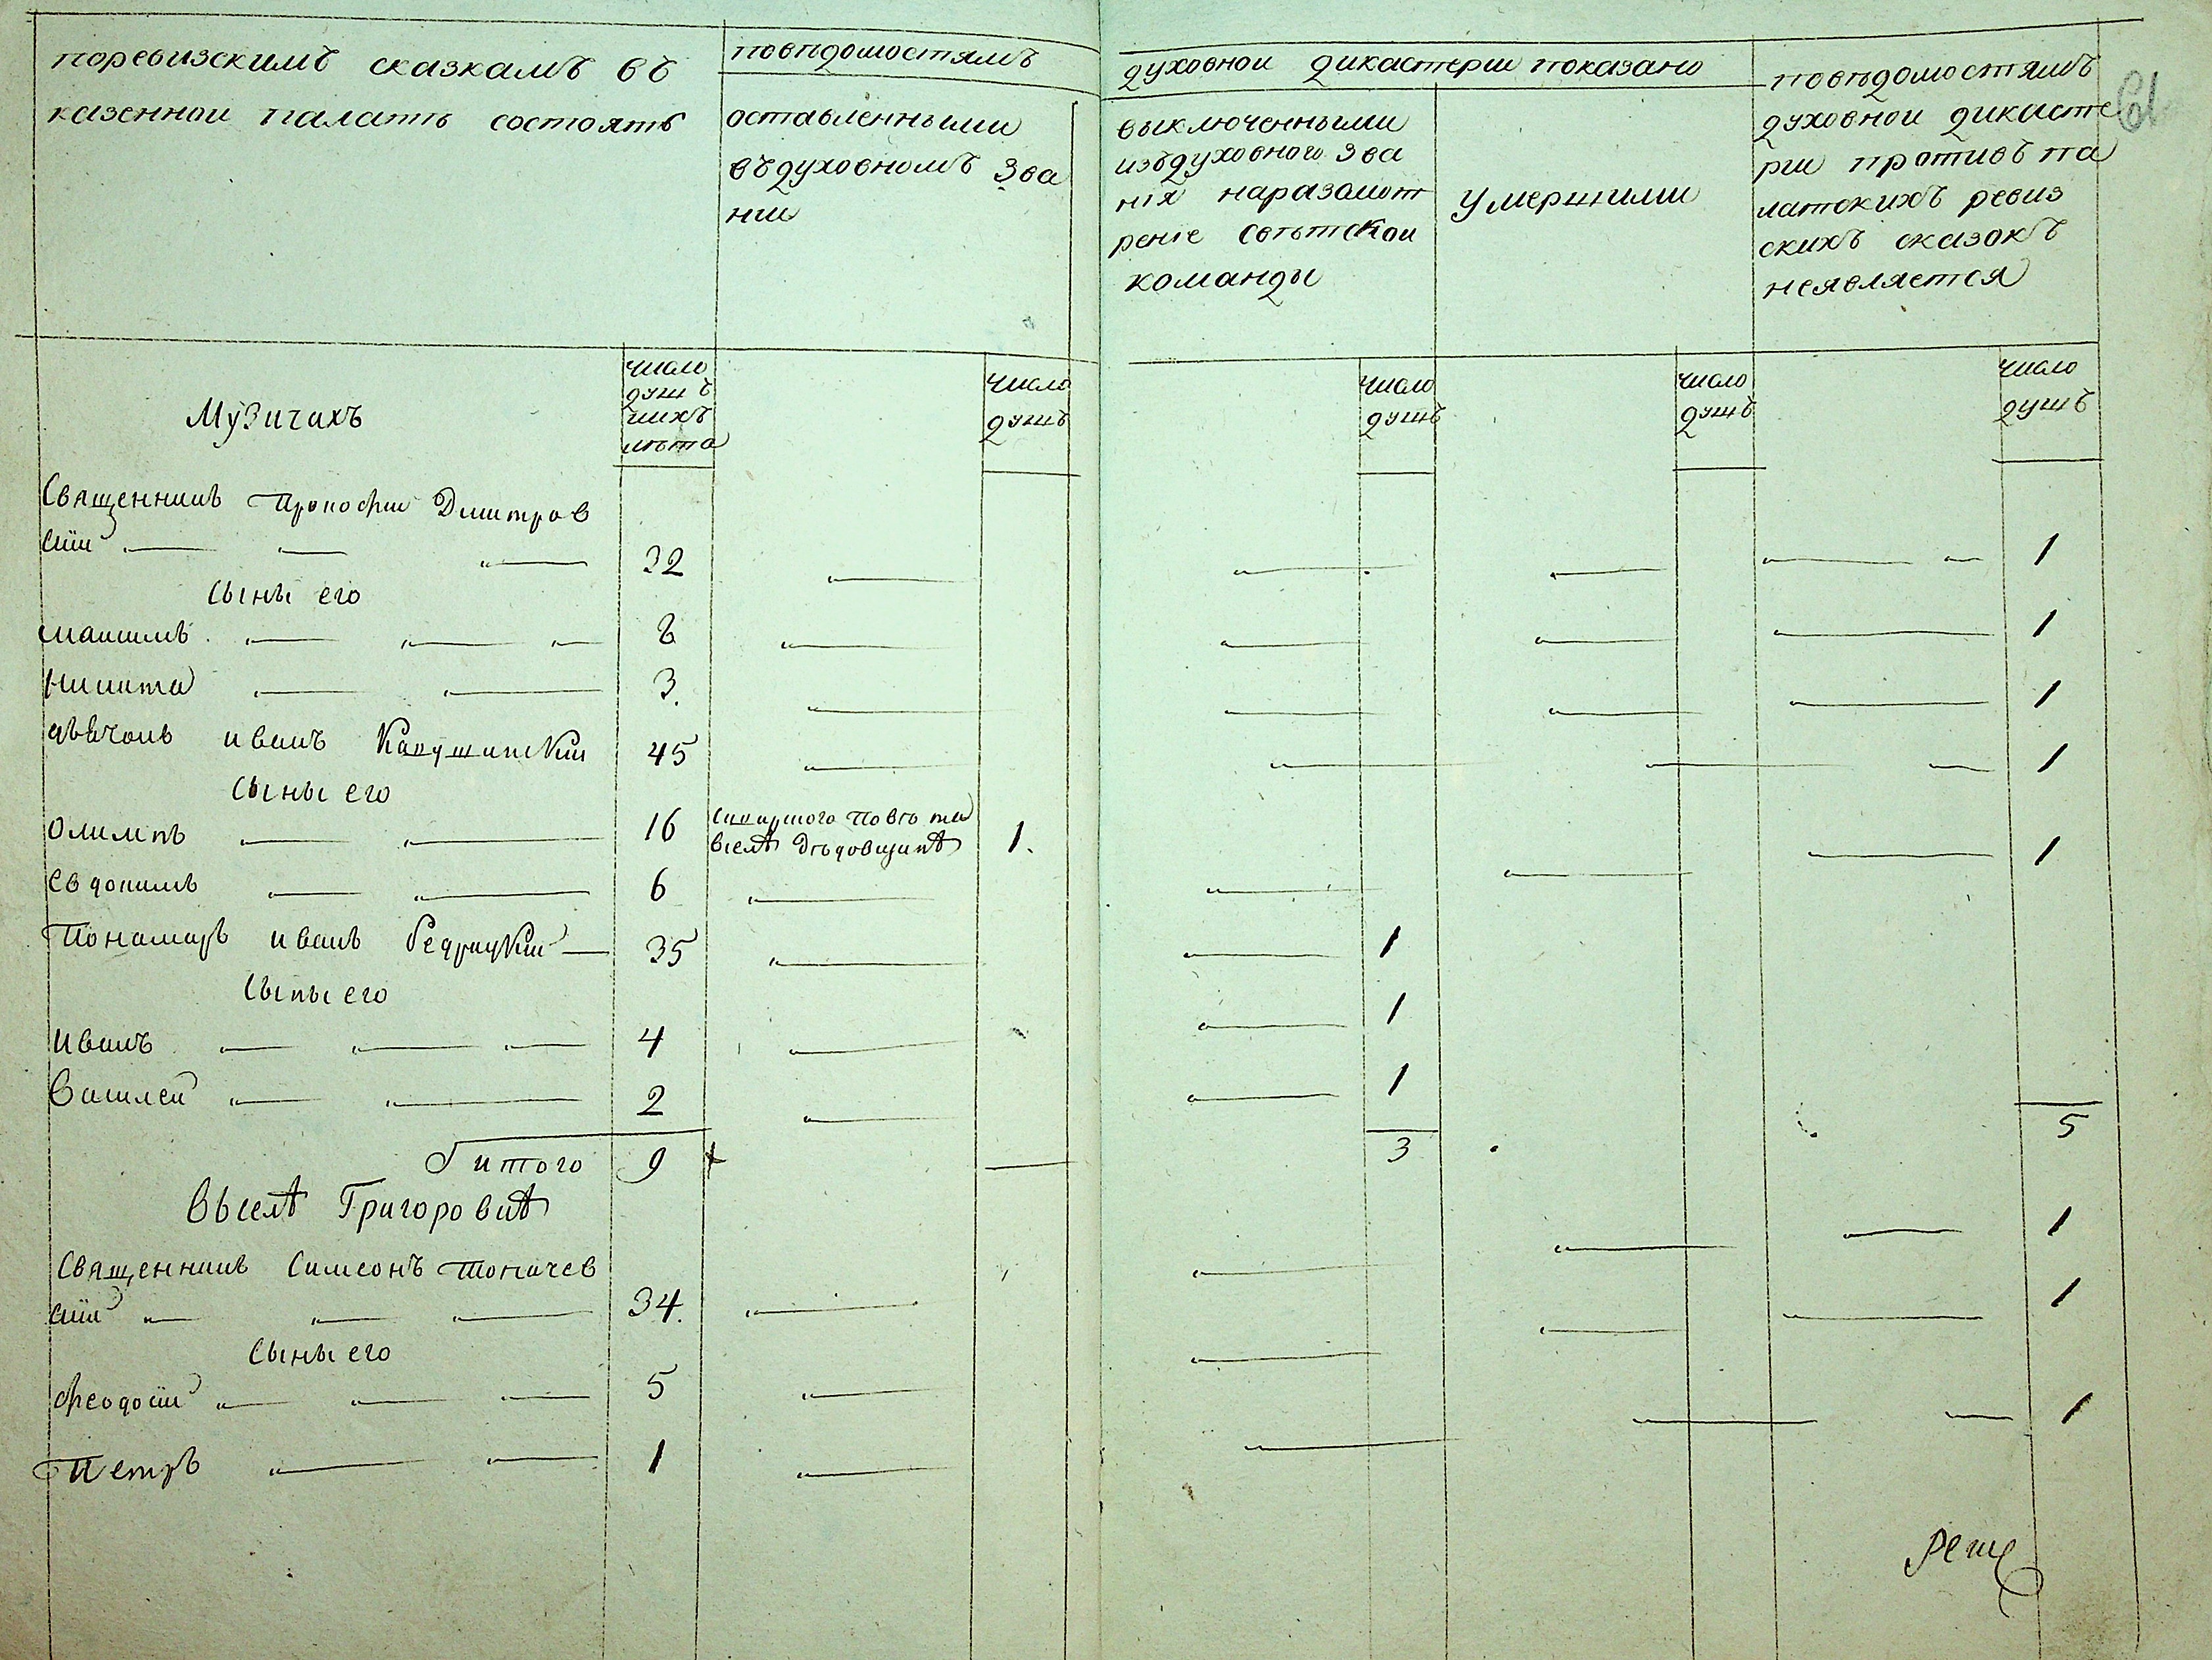 поревизскимъ сказкамъ въ
казеннои палатѣ состоятъ
повѣдомостямъ
оставленными
въдуховномъ зва
нии
духовнои дикастерии показано
выключенными
издуховного зва
нія наразсмот
реніе свѣтской
команды
умершими
повѣдомостямъ
духовнои дикасте
рии противъ па
латскихъ ревиз
скихъ сказокъ
неявляется
61
число
душъ
ихъ
лѣта
число
душъ
число
душъ
число
душъ
число
душъ
Музичахъ
Священникъ Прокофии Дмитров
скій 32 1
Сыны его
Максимъ 8 1
Никита 3. 1
дьячокъ иванъ 45 1
Сыны его
Олимпъ 16 повѣта
вселѣ Дѣдовщинѣ 1. 1
Евдокимъ 6
Пономаръ иванъ 35 1
Сыны его
Иванъ 4 1
Василей 2 1
итого 9 3 5
Вселѣ Григоровкѣ
Священникъ Симеонъ Топачев
скій 34. 1
Сыны его
Феодосій 5 1
Петръ 1 1